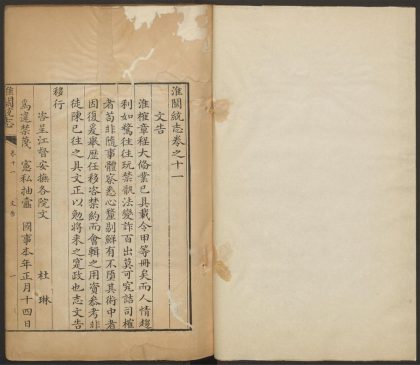 淮關統志卷之十一
文告
淮榷章程大條業已具載令甲等冊矣而人情趨
利如鶩往往玩禁骩法變詐百出莫可究詰司榷
者苟非隨事體察悉心釐剔鮮有不墮其術中者
因復爰取歷任移咨禁約而會輯之用資參考非
徒陳已往之具文正以勉將來之寔政也志文告
移行
咨呈江督安撫各院文
杜琳
為違禁蔑憲私抽虐國事本年正月十四日
淮關統志
卷十一
文告
一